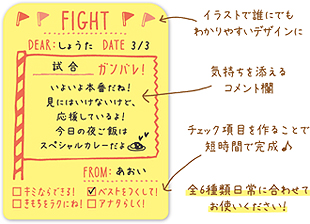 FIGHT
DEAR:しょうた DATE 3/3
試合 ガンバレ!
いよいよ本番だね!
見にはいけないけど、
応援しているよ!
今日の夜ご飯は
スペシャルカレーだよ
FROM:あおい
キミならできる! ベストをつくして!
きもちをラクにね! アナタらしく!
イラストで誰にでも
わかりやすいデザインに
気持ちを添える
コメント欄
チェック項目を作ることで
短時間で完成♪
全6種類日常に合わせて
お使いください!